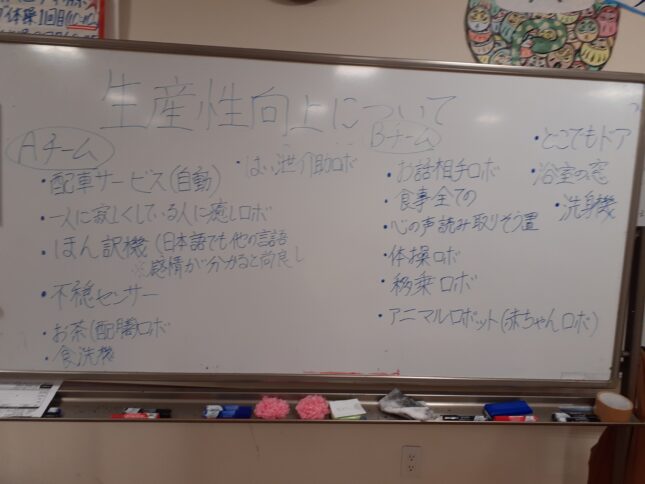 体操1回目
生産性向上について
Aチーム
・配車サービス(自動)
・はい泄介助ロボ
・一人に寂しくしている人に癒しロボ
・ほん訳機(日本語でも他の言語
※感情が分かると尚良し
・不穏センサー
・お茶(配膳ロボ
・食洗機
Bチーム
・お話相手ロボ
・食事全ての
・心の声読み取りそう置
・体操ロボ
・移乗ロボ
・アニマルロボット(赤ちゃんロボ)
・どこでもドア
・浴室の窓
・洗身機